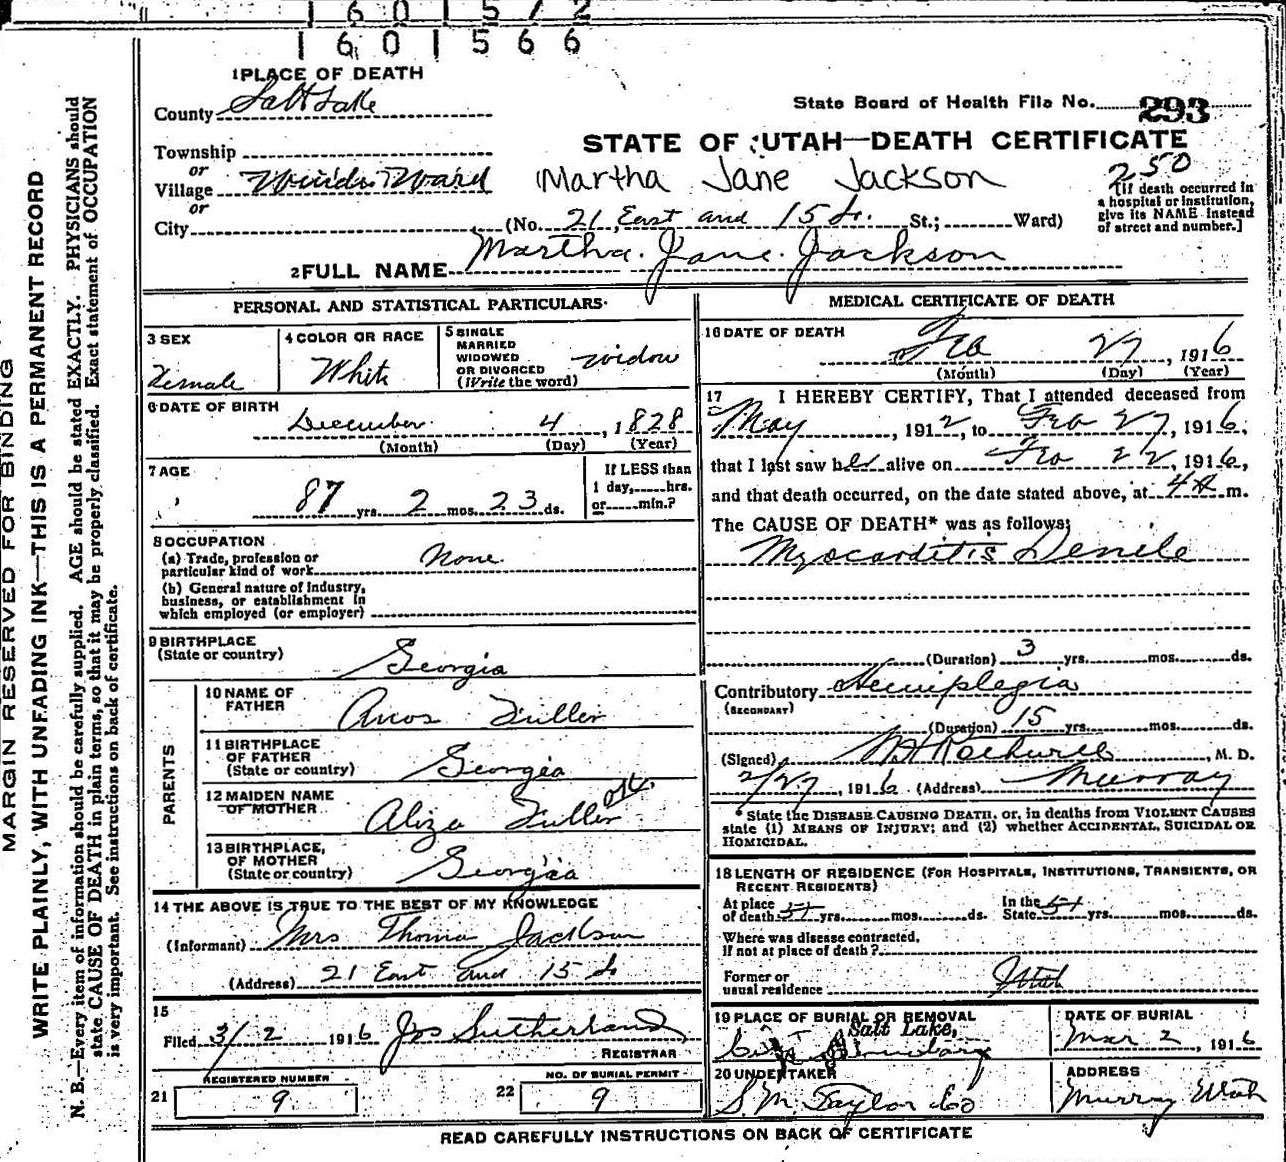 1601572
1601566
1 PLACE OF DEATH
County Salt Lake
State Board of Health File No. 293
STATE OF UTAH—DEATH CERTIFICATE
Township
or
Village Winder Ward
Martha Jane Jackson
250
[If death occurred in a hospital or institution, give its NAME instead of street and number.]
or
City (No. 21 East and 15 So. St.; Ward)
2 FULL NAME Martha Jane Jackson
PERSONAL AND STATISTICAL PARTICULARS
3 SEX
Female
4 COLOR OR RACE
White
5 SINGLE
MARRIED
WIDOWED
OR DIVORCED
(Write the word)
widow
6 DATE OF BIRTH
December 4, 1828
(Month) (Day) (Year)
7 AGE
87 yrs. 2 mos. 23 ds.
If LESS than
1 day, hrs.
or min.?
8 OCCUPATION
(a) Trade, profession or
particular kind of work None
(b) General nature of industry,
business, or establishment in
which employed (or employer)
9 BIRTHPLACE
(State or country) Georgia
PARENTS
10 NAME OF
FATHER Amos Fuller
11 BIRTHPLACE
OF FATHER
(State or country) Georgia
12 MAIDEN NAME
OF MOTHER Aliza Fuller
13 BIRTHPLACE,
OF MOTHER
(State or country) Georgia
14 THE ABOVE IS TRUE TO THE BEST OF MY KNOWLEDGE
(Informant) Mrs Thoma Jackson
(Address) 21 East and 15 So
15
Filed 3/2 1916 Jos Sutherland
REGISTRAR
21 REGISTERED NUMBER
9
22 NO. OF BURIAL PERMIT
9
MEDICAL CERTIFICATE OF DEATH
16 DATE OF DEATH
Feb 27, 1916
(Month) (Day) (Year)
17 I HEREBY CERTIFY, That I attended deceased from
May, 1912, to Feb 27, 1916,
that I last saw her alive on Feb 22, 1916,
and that death occurred, on the date stated above, at 4 A m.
The CAUSE OF DEATH* was as follows:
Myocarditis Senile
(Duration) 3 yrs. mos. ds.
Contributory Hemiplegia
(SECONDARY)
(Duration) 15 yrs. mos. ds.
(Signed) M. D.
2/27, 1916 (Address) Murray
* State the DISEASE CAUSING DEATH, or, in deaths from VIOLENT CAUSES
state (1) MEANS OF INJURY; and (2) whether ACCIDENTAL, SUICIDAL OR
HOMICIDAL.
18 LENGTH OF RESIDENCE (FOR HOSPITALS, INSTITUTIONS, TRANSIENTS, OR
RECENT RESIDENTS)
At place
of death yrs. mos. ds.
In the
State yrs. mos. ds.
Where was disease contracted,
if not at place of death?
Former or
usual residence Utah
19 PLACE OF BURIAL OR REMOVAL
Salt Lake,
City
DATE OF BURIAL
Mar 2, 1916
20 UNDERTAKER
S M Taylor Co
ADDRESS
Murray Utah
READ CAREFULLY INSTRUCTIONS ON BACK OF CERTIFICATE
MARGIN RESERVED FOR BINDING
WRITE PLAINLY, WITH UNFADING INK—THIS IS A PERMANENT RECORD
N. B.—Every item of information should be carefully supplied. AGE should be stated EXACTLY. PHYSICIANS should
state CAUSE OF DEATH in plain terms, so that it may be properly classified. Exact statement of OCCUPATION
is very important. See instructions on back of certificate.